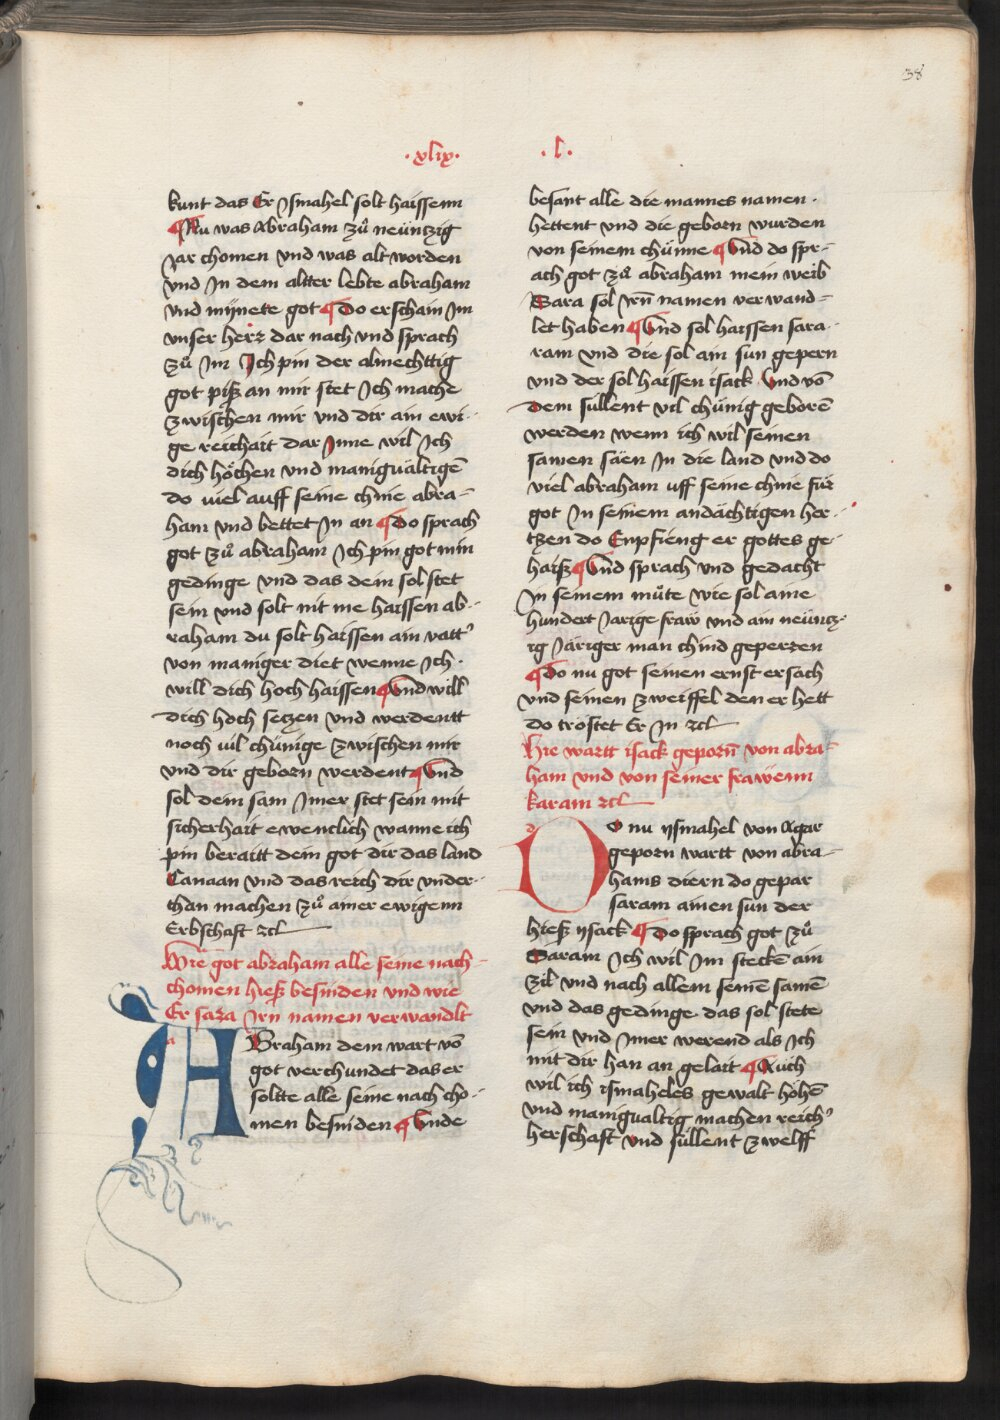 38
·xlix·
kunt das Er Jsmahel solt haissenn
¶Nu was Abraham zuͦ neüntzig
Jar chomen vnd was alt worden
vnd Jn dem altter lebte abraham
vnd mÿnete got ¶Do erschain Jm
vnser herz dar nach vnd sprach
zuͦ Jm Jch pin der almechttig
got piß an mir stet Jch mache
zwischen mir vnd dir ain ewi-
ge reichait dar Jnne wil Jch
dich höchen vnd manigualtigē
do viel auff seine chnie abra-
ham vnd bettet Jn an ¶Do sprach
got zuͦ abraham Jch pin got min
gedinge vnd das dein sol stet
sein vnd solt nit me haissen ab-
raham du solt haissen ain vatt'
von maniger diet wenne Jch
will dich hoch haissen ¶Vnd will
dich hoch setzen vnd werdentt
noch uil chünige zwischen mir
vnd dir geborn werdent ¶Vnd
sol dein sam Jmer stet sein mit
sicherhait ewenclich wanne ich
pin beraitt dein got dir das land
Canaan vnd das reich dir vnder-
than machen zuͦ ainer ewigenn
Erbschaft ꝛcꝉ
Wie got abraham alle seine nach-
chomen hieß besniden vnd wie
Er saza Jrn namen verwandlt
a
ABraham dem wart vō
got verchundet das er
soltte alle seine nach cho-
men besniden ¶Vnde
·l·
besant alle die mannes namen
hettent vnd die geborn wurden
von seinem chünne ¶Vnd do spr-
ach got zuͦ abraham mein weib
Sara sol Jrn̄ namen verwand-
let haben ¶Vnd sol haissen sara
ram vnd die sol ain sun gepern
vnd der sol haissen isack Vnd vō
dem sullent vil chünig geborē
werden wenn ich wil seinen
samen säen Jn die land vnd do
viel abraham uff seine chnie für
got Jn seinem andächtigen her-
tzen do Enpfieng er gottes ge-
haiß ¶Vnd sprach vnd gedacht
Jn seinem müte wie sol aine
hundert Jarige fraw vnd ain neüntz-
ig Järiger man chind geperzen
¶Do nu got seinen ernst ersach
vnd seinen zweiffel den er hett
do trostet Er Jn ꝛcꝉ
Hie wartt isack geporn̄ von abra-
ham vnd von seiner frawenn
karam ꝛcꝉ
d
DO nu ysmahel von Agar
geporn wartt von abra-
hams diern do gepar
saram ainen sun der
hieß ysack ¶Do sprach got zuͦ
Saram Jch wil Jm steckē ain
zil vnd nach allem seinē samē
vnd das gedinge das sol stete
sein vnd Jmer werend als Jch
mit dir han an geleit ¶Auch
wil ich ismaheles gewalt höhē
vnd manigualtig machen reich'
herschaft vnd süllent zwelff